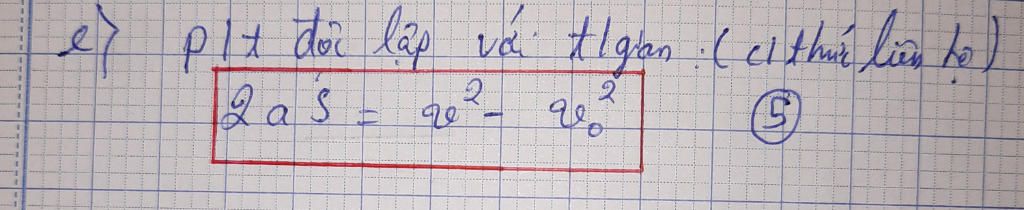 e) p/t độc lập với t/gian. (c/thức liên hệ)
2aS = v² - v₀² ⑤